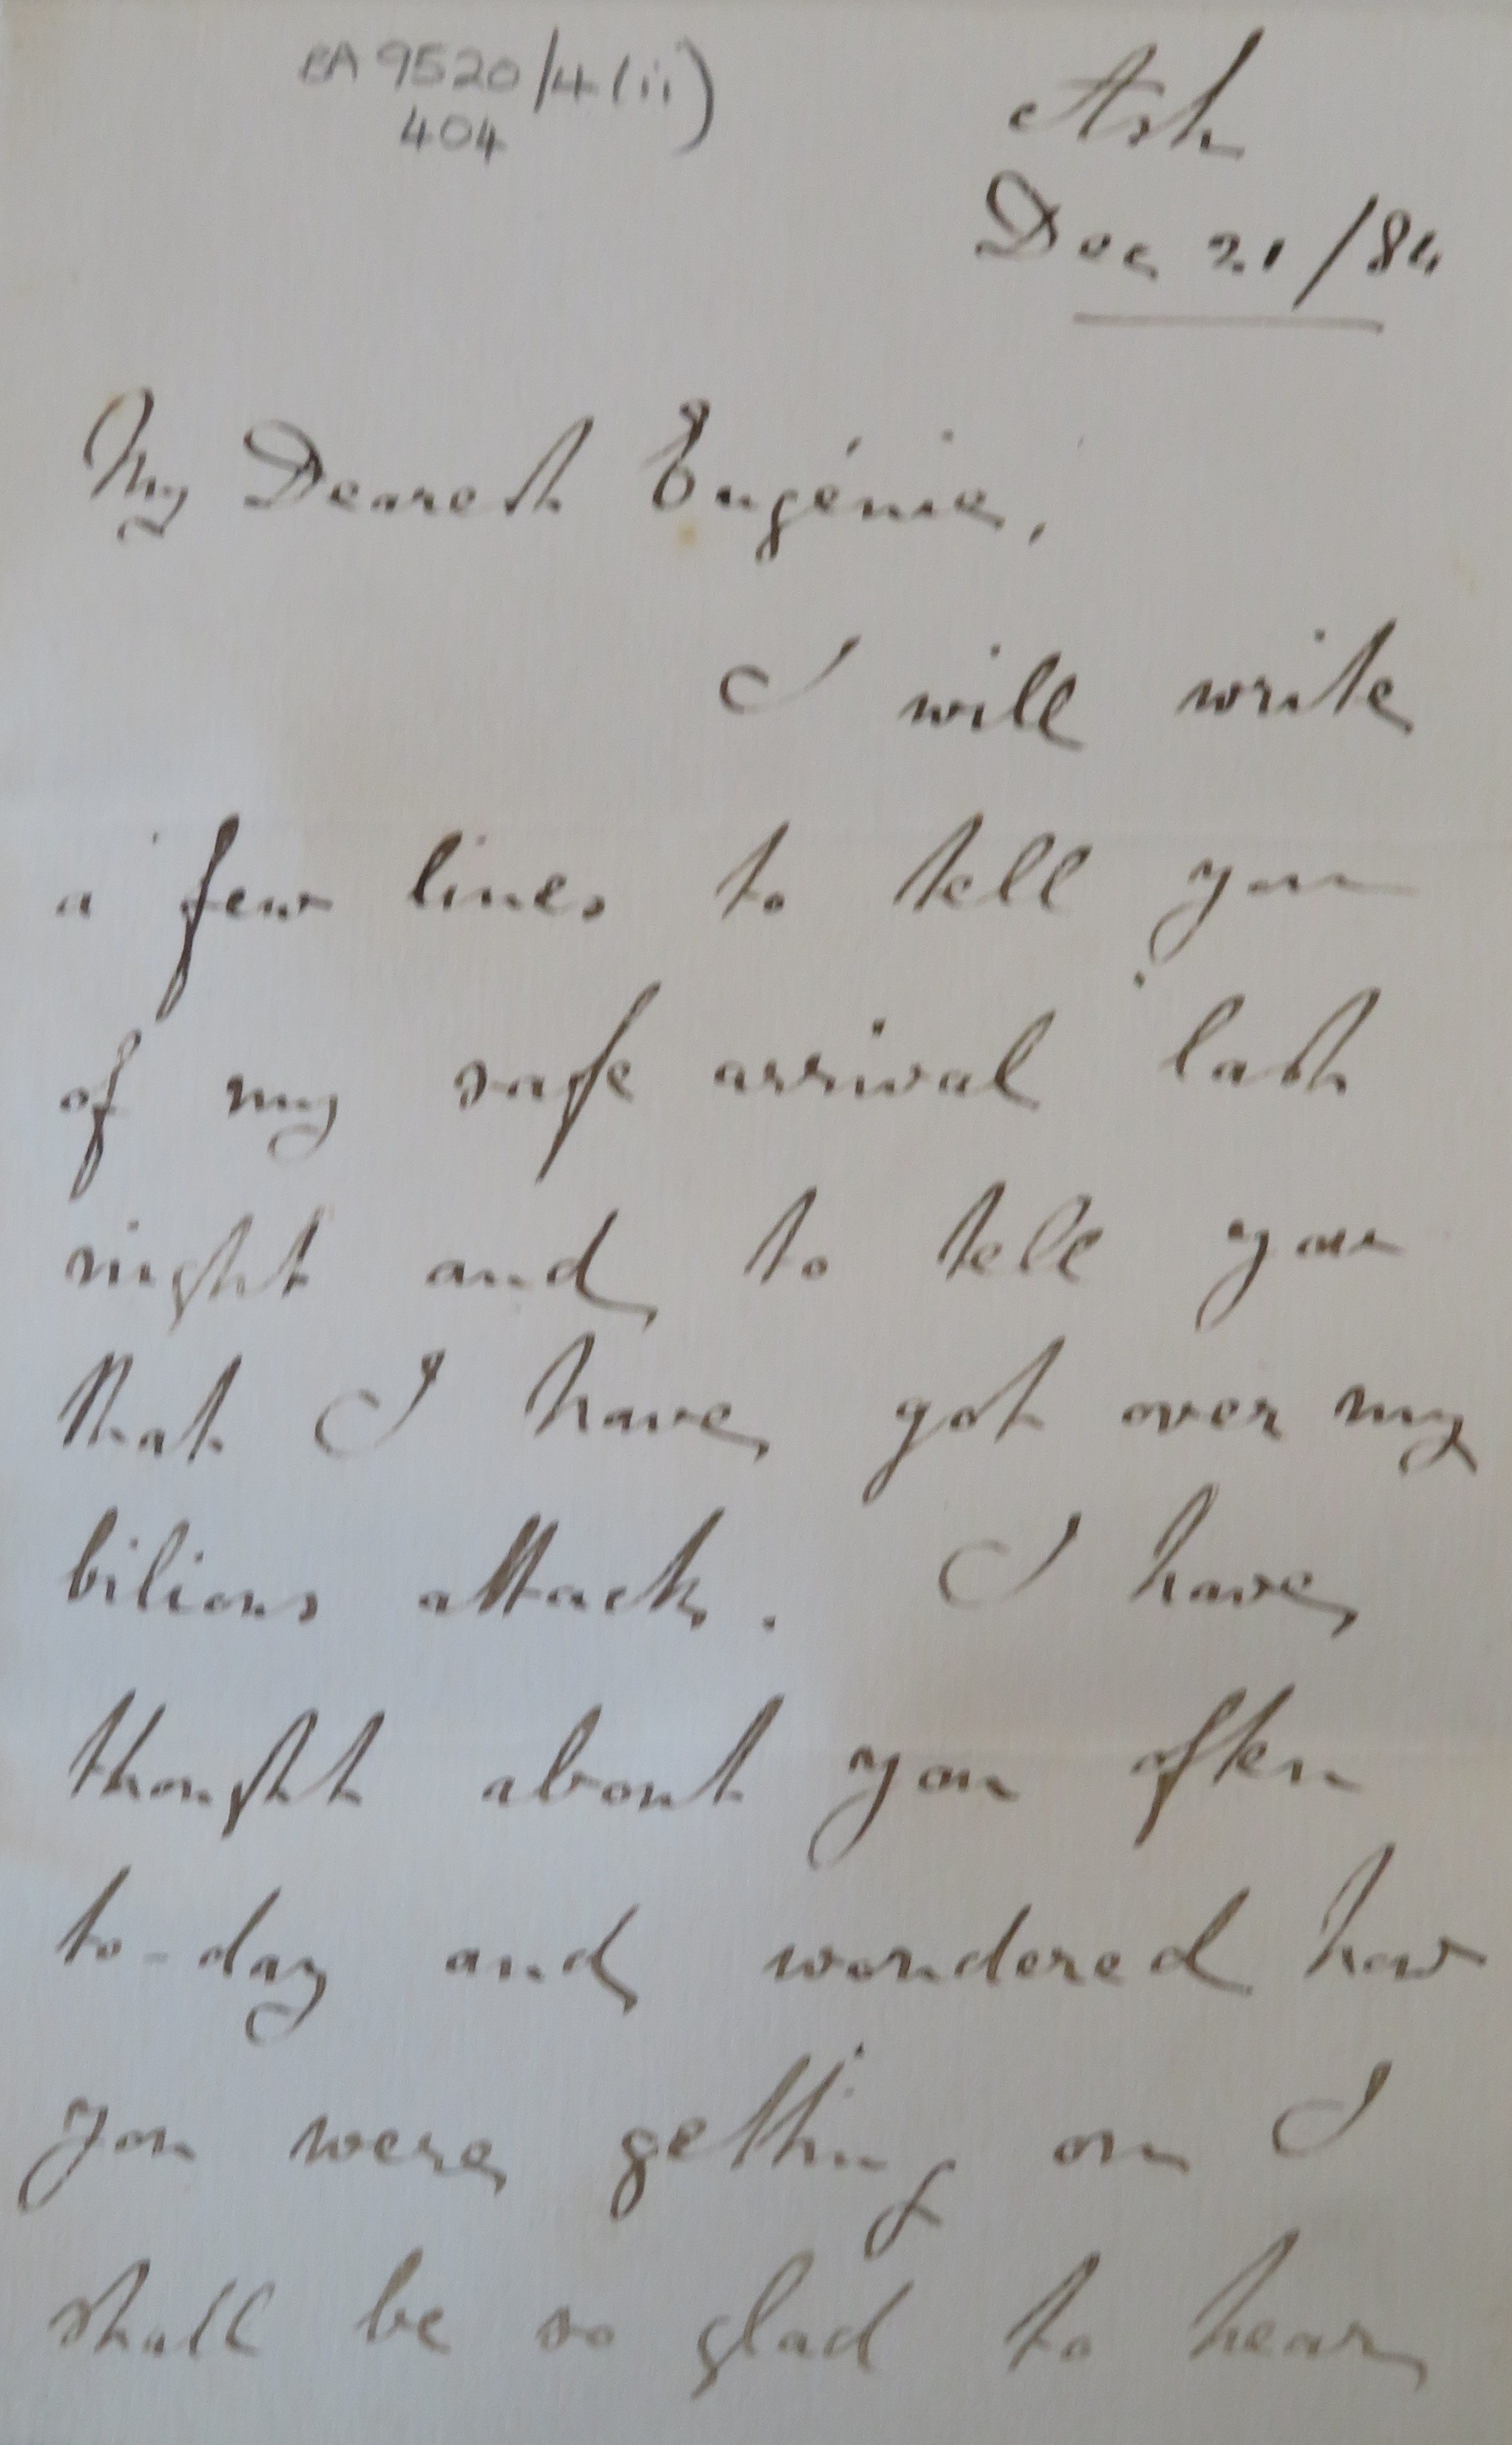 BA 9520/4(ii)
404
Ash
Dec 21/84
My Dearest Eugénie,
I will write
a few lines to tell you
of my safe arrival last
night and to tell you
that I have got over my
bilious attack. I have
thought about you often
to-day and wondered how
you were getting on I
shall be so glad to hear